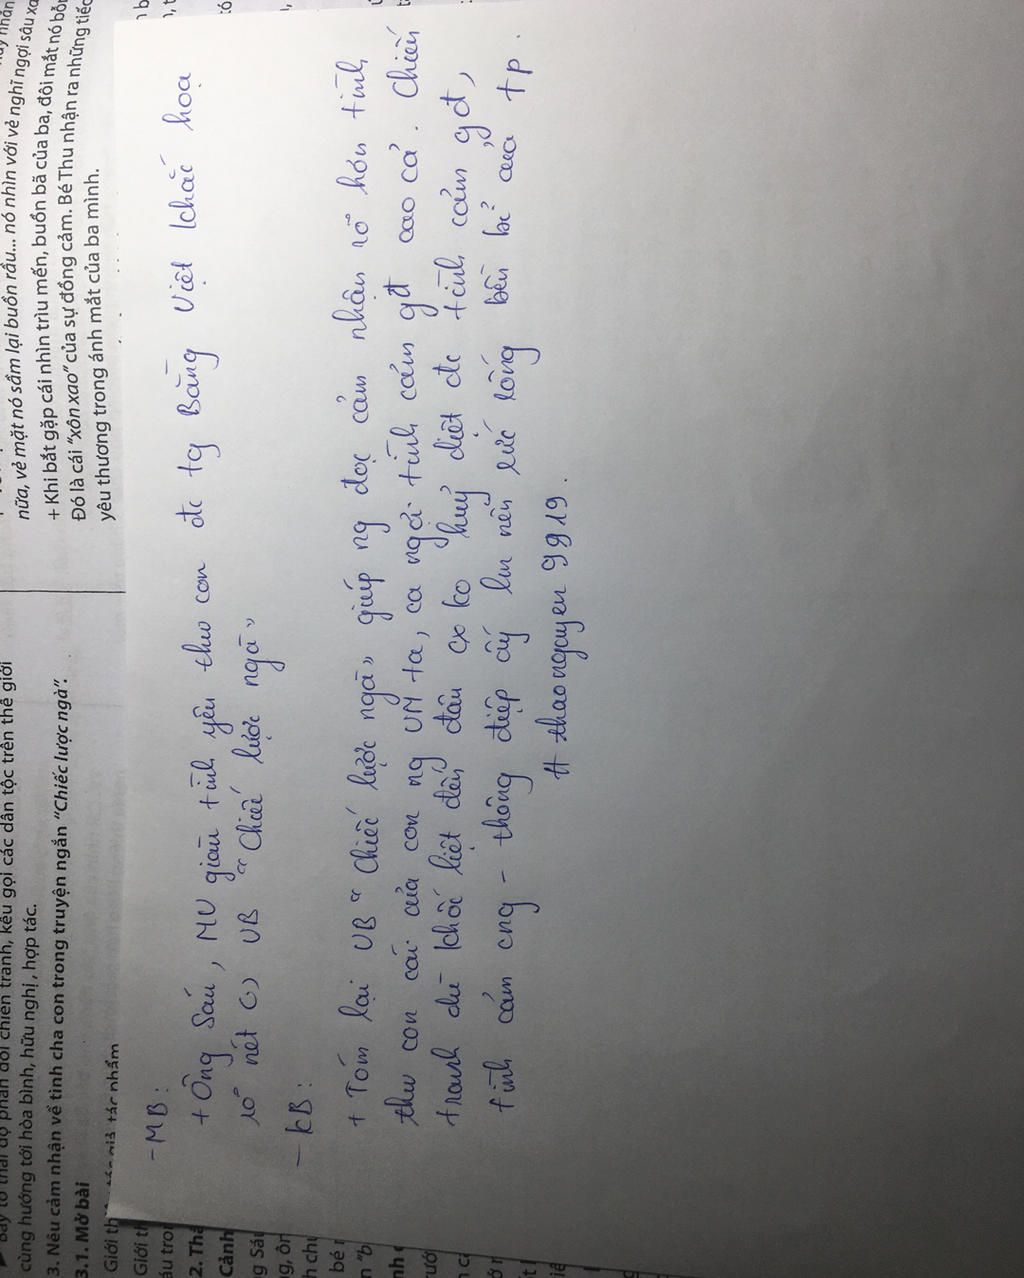 cùng hướng tới hòa bình, hữu nghị, hợp tác.
3. Nêu cảm nhận về tình cha con trong truyện ngắn "Chiếc lược ngà".
3.1. Mở bài
nữa, vẻ mặt nó sầm lại buồn rầu... nó nhìn với vẻ nghĩ ngợi sâu xa
+ Khi bắt gặp cái nhìn trìu mến, buồn bã của ba, đôi mắt nó bỗn
Đó là cái "xôn xao" của sự đồng cảm. Bé Thu nhận ra những tiếc
yêu thương trong ánh mắt của ba mình.
- MB:
+ Ông Sáu, MV giàu tình yêu thw con đc tg Bằng Việt khắc hoạ
rõ nét (-) VB "Chiếc lược ngà"
- KB:
+ Tóm lại VB "Chiếc lược ngà" giúp ng đọc cảm nhận rõ hơn tình
thw con cái của con ng VN ta, ca ngợi tình cảm gđ cao cả. Chiến
tranh dù khốc liệt đến đâu cx ko huỷ diệt đc tình cảm gđ,
tình cảm cng - thông điệp ấy lm nên sức sống bền bỉ của tp.
# thaonguyen 9919.